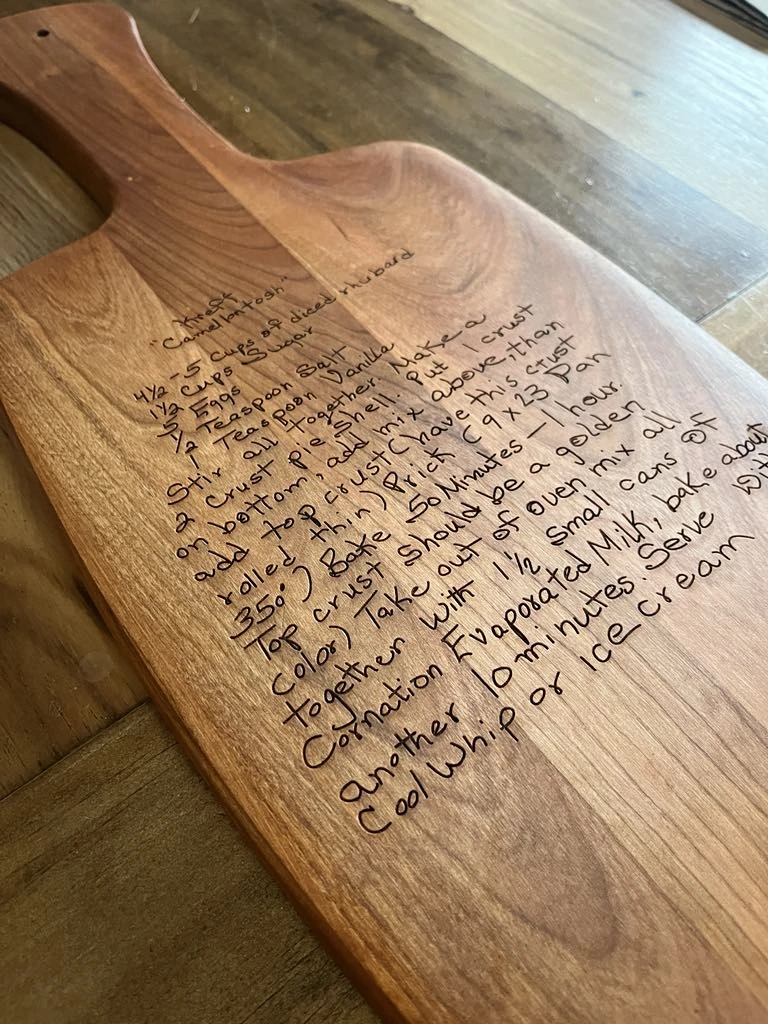 Kreft
"Camelintosh"
4½ - 5 cups of diced rhubard
1½ cups Sugar
5 Eggs
½ Teaspoon Salt
1 Teaspoon Vanilla
Stir all together. Make a
2 crust pie shell. Put 1 crust
on bottom, add mix above, than
add top crust (have this crust
rolled thin) Prick (9 x 23 Pan
350°) Bake 50 Minutes - 1 hour.
Top crust should be a golden
color) Take out of oven mix all
together with 1½ small cans of
Cornation Evaporated Milk, bake about
another 10 minutes. Serve with
Cool Whip or ice cream